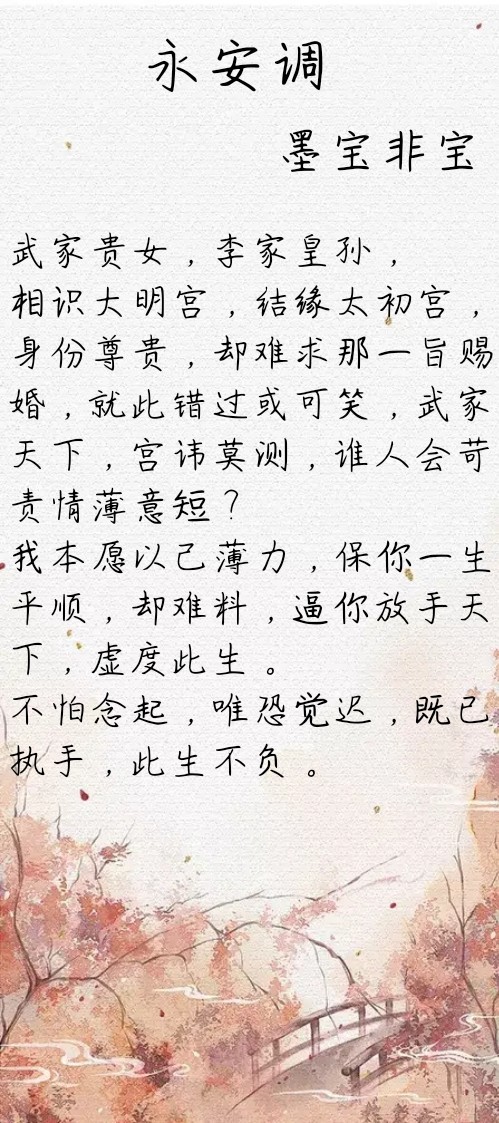 永安调
墨宝非宝
武家贵女，李家皇孙，
相识大明宫，结缘太初宫，
身份尊贵，却难求那一旨赐
婚，就此错过或可笑，武家
天下，宫讳莫测，谁人会苛
责情薄意短？
我本愿以己薄力，保你一生
平顺，却难料，逼你放手天
下，虚度此生。
不怕念起，唯恐觉迟，既已
执手，此生不负。